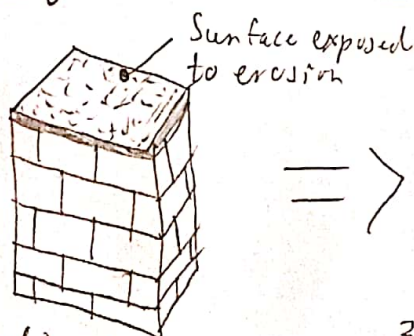 Surface exposed
to erosion